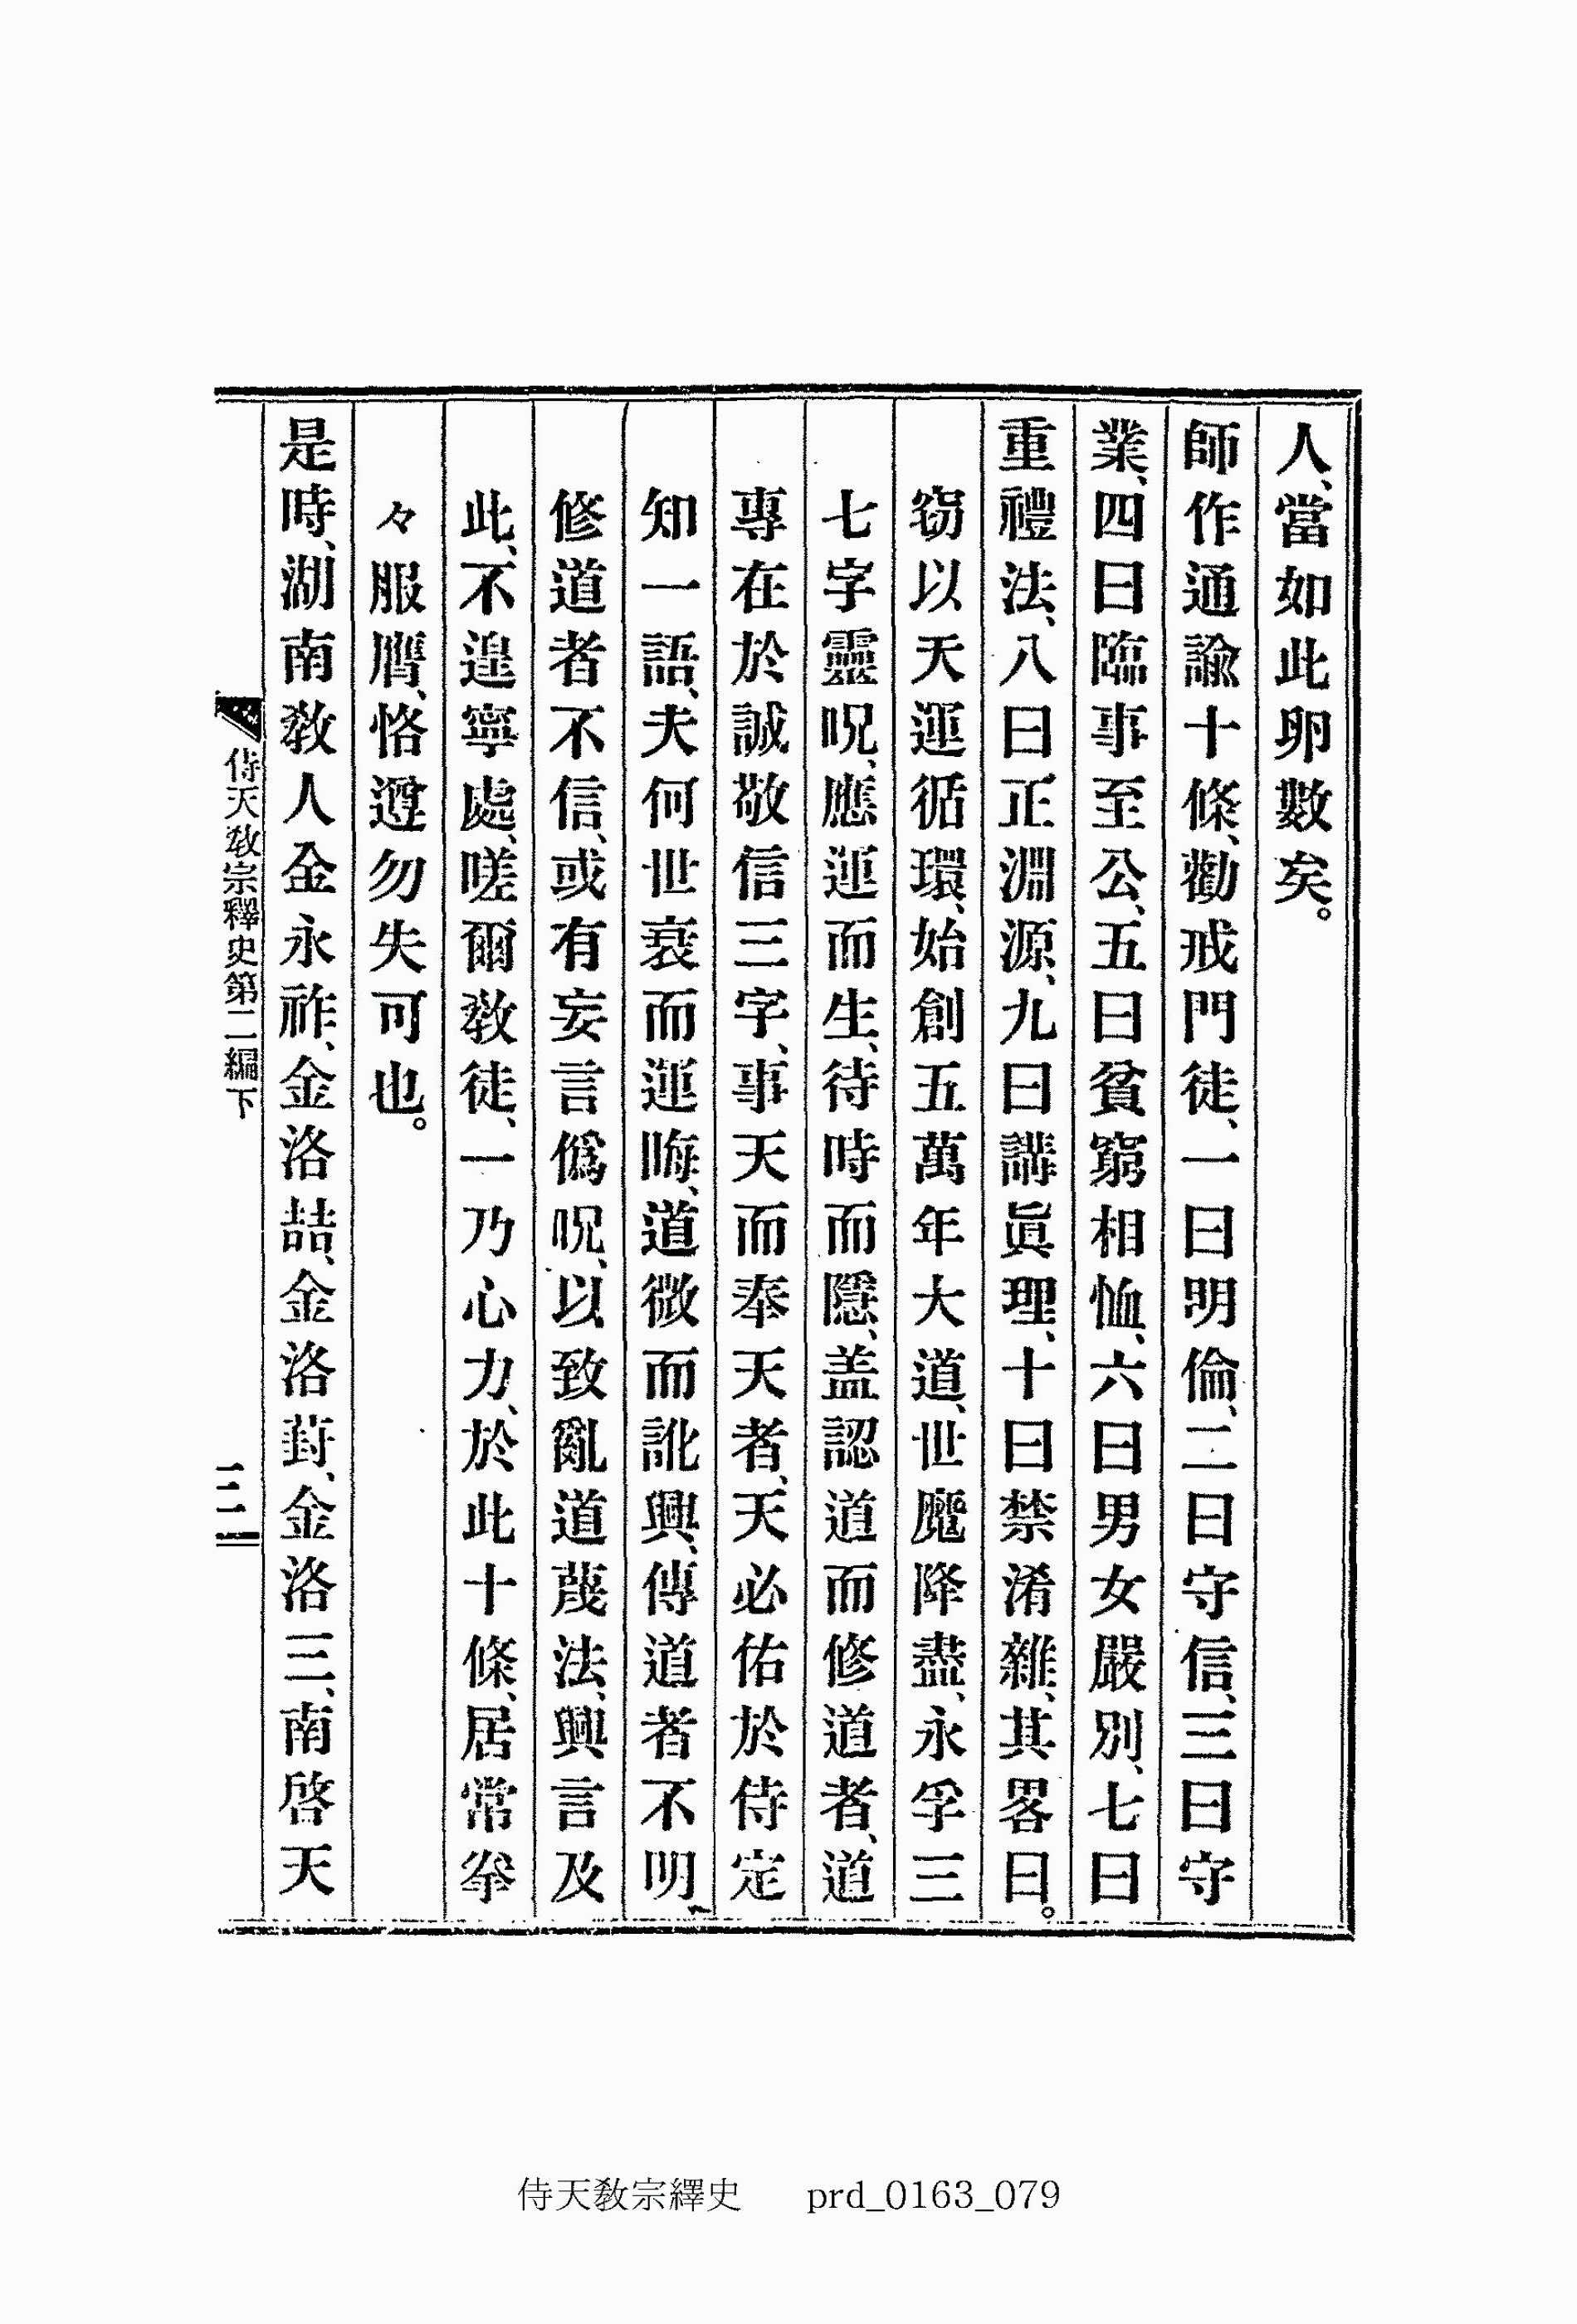 人、當如此卵數矣。
師作通諭十條、勸戒門徒、一曰明倫、二曰守信、三曰守
業、四曰臨事至公、五曰貧窮相恤、六曰男女嚴別、七曰
重禮法、八曰正淵源、九曰講眞理、十曰禁淆雜、其畧曰。
窃以天運循環、始創五萬年大道、世魔降盡、永孚三
七字靈呪、應運而生、待時而隱、盖認道而修道者、道
專在於誠敬信三字、事天而奉天者、天必佑於侍定
知一語、夫何世衰而運晦、道微而訛興、傳道者不明、
修道者不信、或有妄言僞呪、以致亂道蔑法、興言及
此、不遑寧處、嗟爾敎徒、一乃心力、於此十條、居常拳
々服膺、恪遵勿失可也。
是時、湖南敎人金永祚、金洛喆、金洛葑、金洛三、南啓天
侍天敎宗繹史第二編下
三
侍天敎宗繹史 prd_0163_079